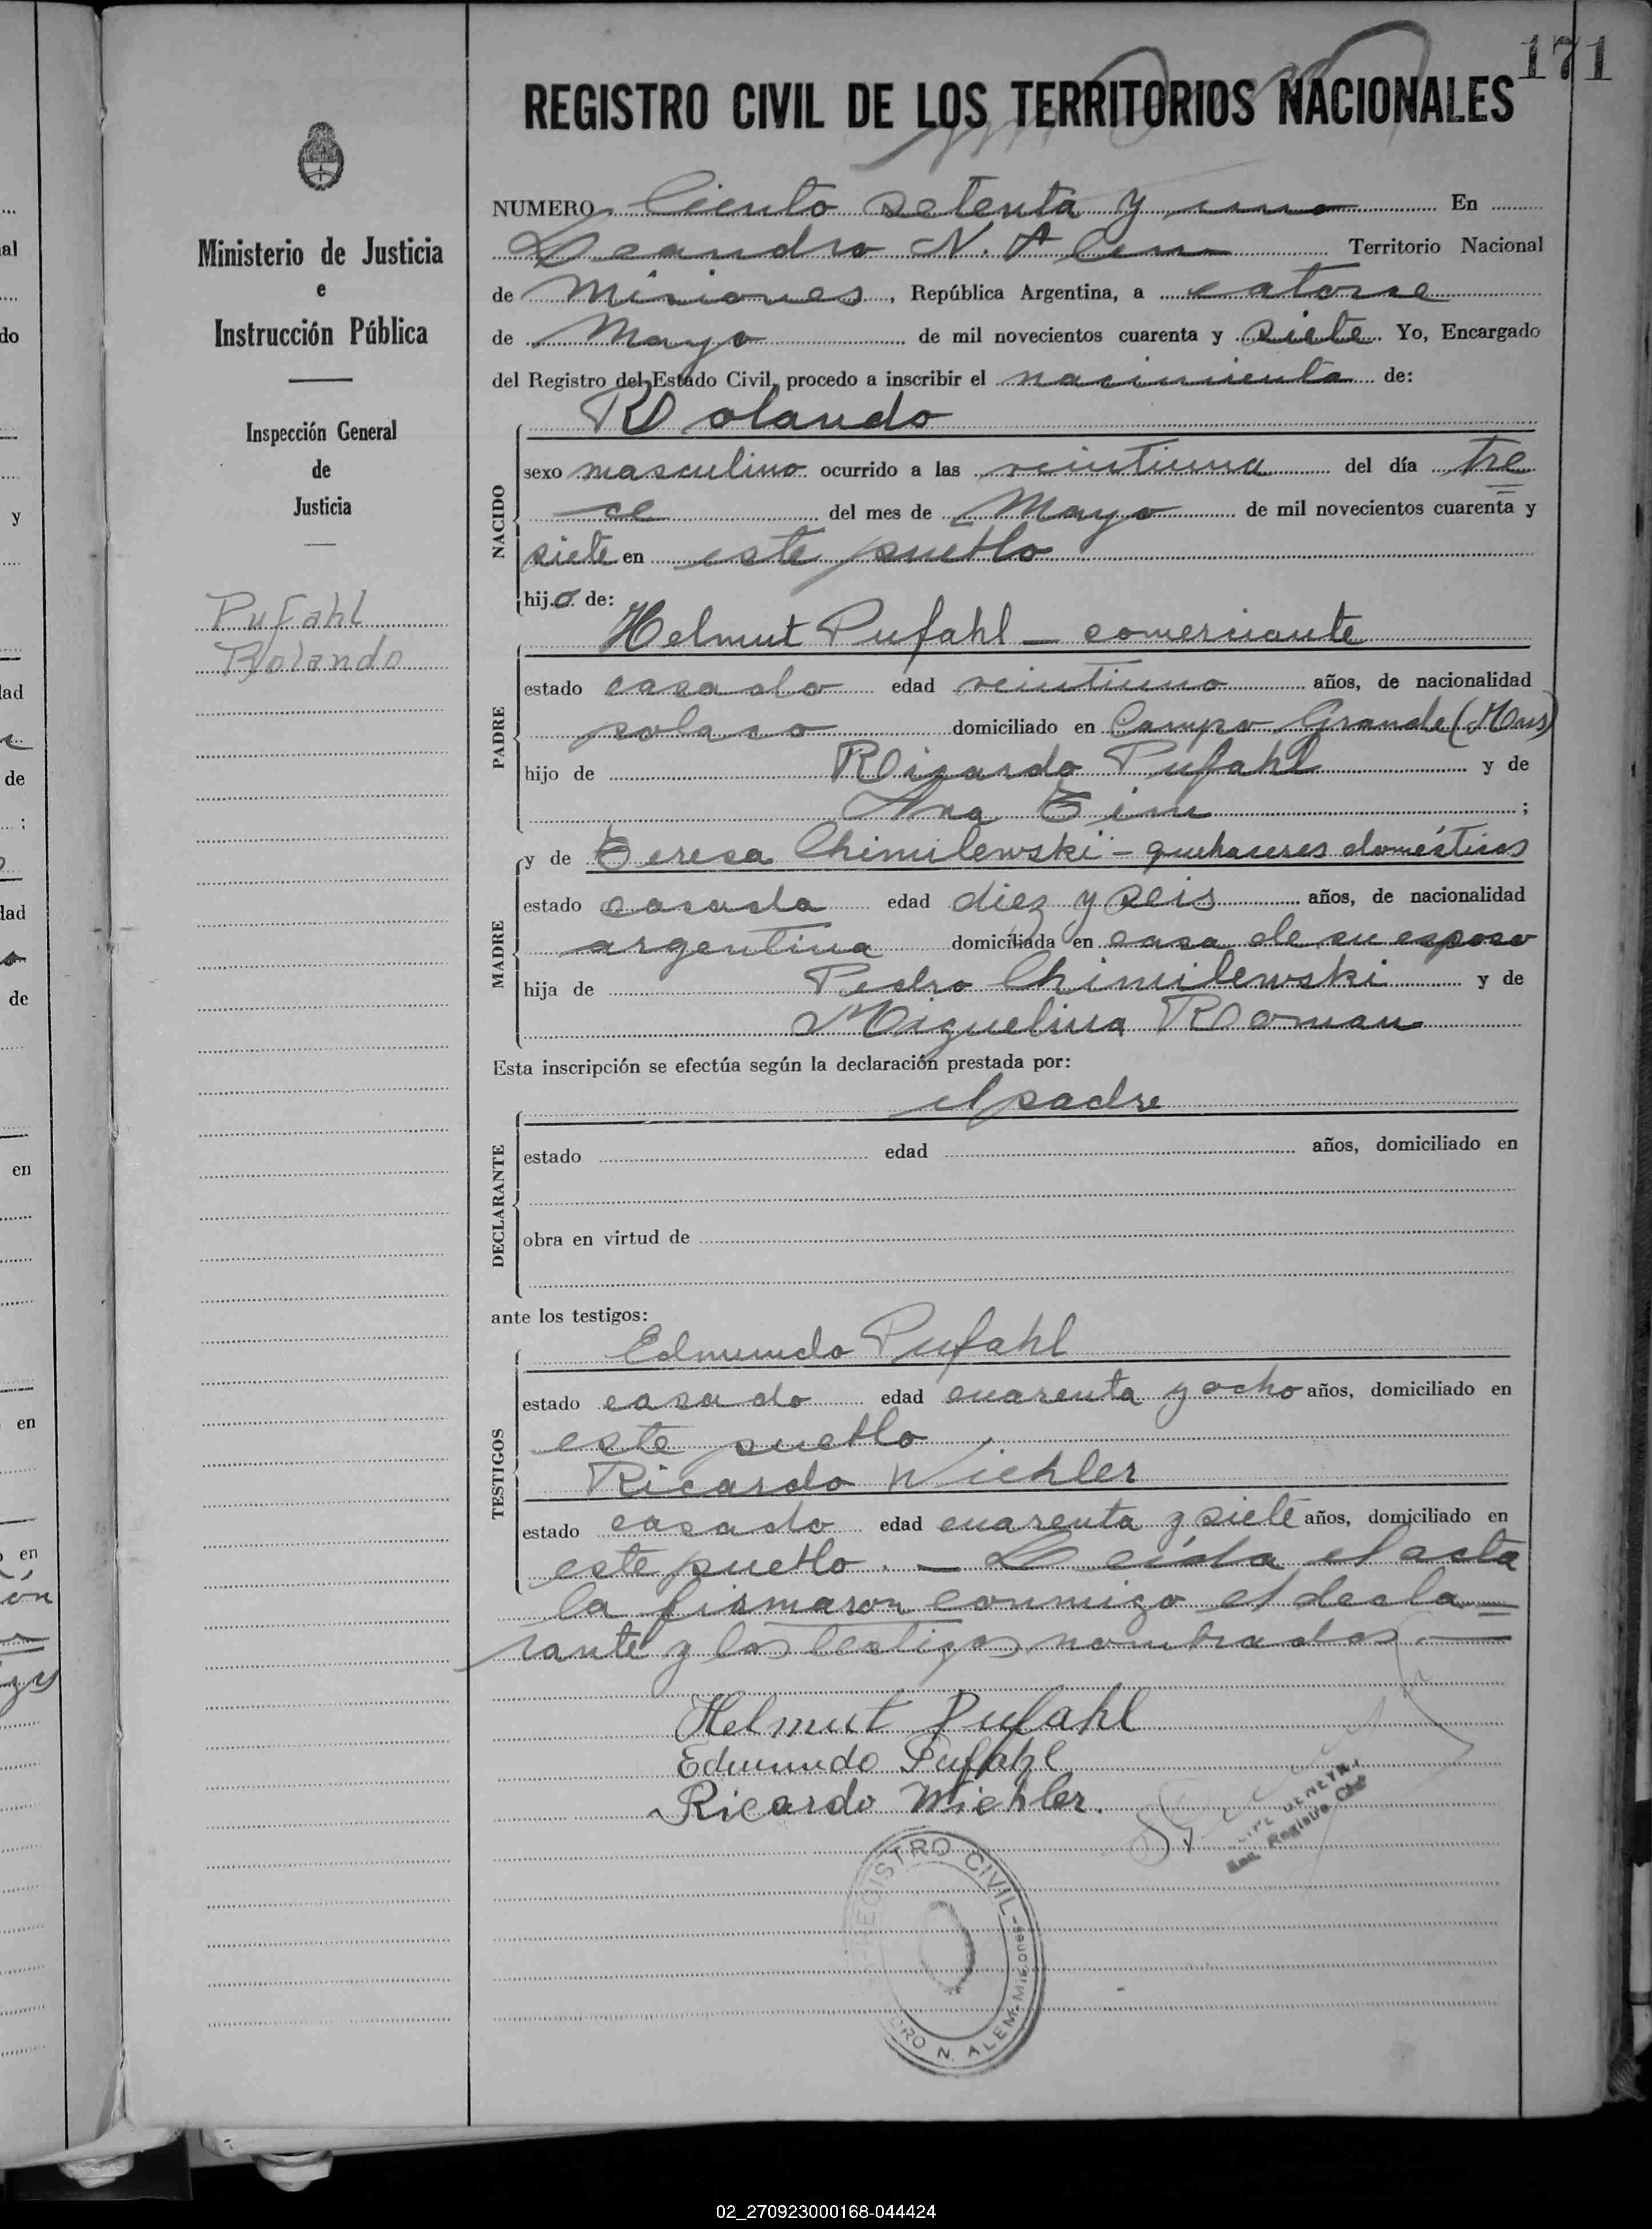 171
REGISTRO CIVIL DE LOS TERRITORIOS NACIONALES
Ministerio de Justicia
e
Instrucción Pública
Inspección General
de
Justicia
Pufahl
Rolando
NUMERO Ciento setenta y uno En
Leandro N. Alem Territorio Nacional
de Misiones, República Argentina, a catorse
de Mayo de mil novecientos cuarenta y siete Yo, Encargado
del Registro del Estado Civil, procedo a inscribir el nacimiento de:
Rolando
NACIDO
sexo masculino ocurrido a las veintiuna del día tre
ce del mes de Mayo de mil novecientos cuarenta y
siete en este pueblo
hijo de:
Helmut Pufahl — comerciante
PADRE
estado casado edad veintiuno años, de nacionalidad
polaco domiciliado en Campo Grande (Mns)
hijo de Ricardo Pufahl y de
Ana Tim ;
y de Teresa Chimilewski - quehaceres domésticos
MADRE
estado casada edad diez y seis años, de nacionalidad
argentina domiciliada en casa de su esposo
hija de Pedro Chimilewski y de
Miguelina Roman
Esta inscripción se efectúa según la declaración prestada por:
el padre
DECLARANTE
estado edad años, domiciliado en
obra en virtud de
ante los testigos:
Edmundo Pufahl
TESTIGOS
estado casado edad cuarenta y ocho años, domiciliado en
este pueblo
Ricardo Wiehler
estado casado edad cuarenta y siete años, domiciliado en
este pueblo. — Leída el acta
la firmaron conmigo el decla=
rante y los testigos nombrados. —
Helmut Pufahl
Edmundo Pufahl
Ricardo Wiehler.
Enc. Registro Civil
REGISTRO CIVIL - DRO N. ALEM - Misiones -
al
do
y
lad
de
;
lad
de
en
en
en
02_270923000168-044424